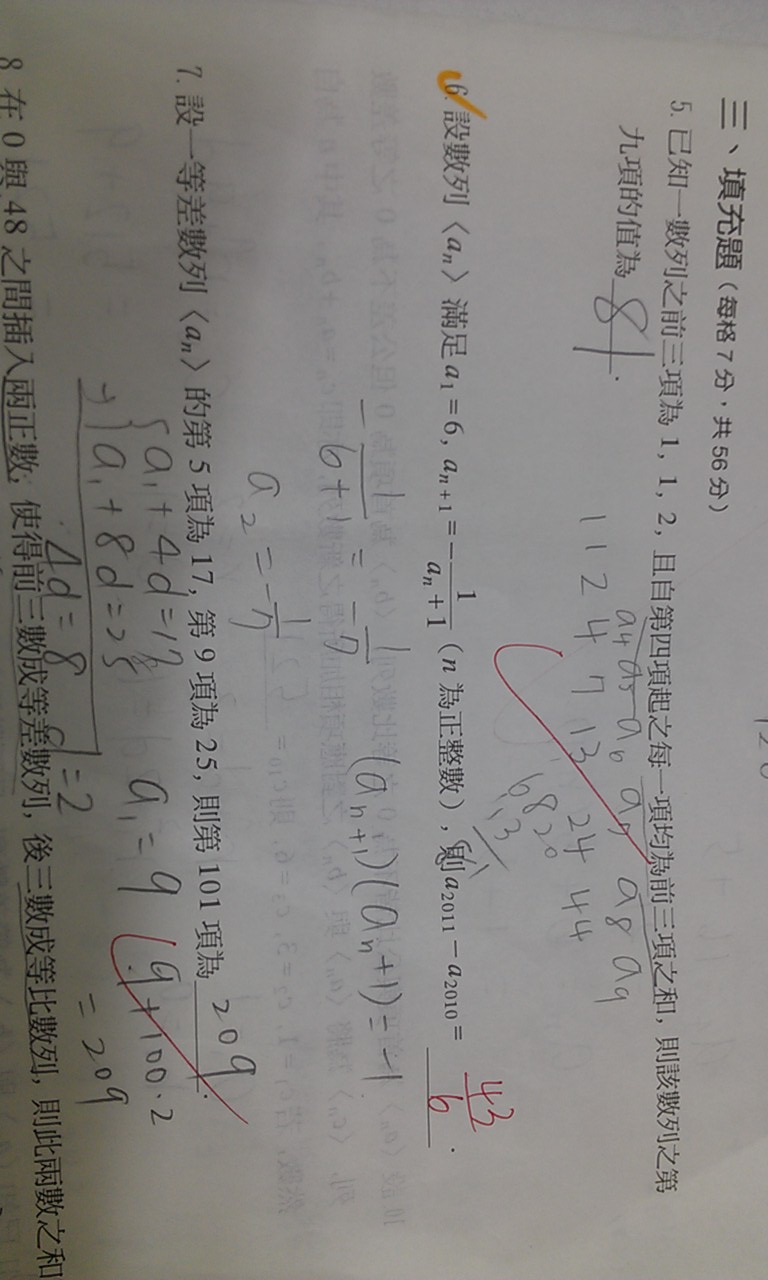 三、填充題(每格7分,共56分)
5. 已知一數列之前三項為 1, 1, 2, 且自第四項起之每一項均為前三項之和, 則該數列之第
九項的值為 81.
a4 a5 a6 a7 a8 a9
1 1 2 4 7 13 24 44
6. 設數列〈an〉滿足 a1 = 6, an+1 = -1/(an+1) (n 為正整數), 則 a2011 - a2010 = 43/6.
- 1/(6+1) = - 1/7
(an+1)(an+1) = -1
a2 = - 1/7
7. 設一等差數列〈an〉的第 5 項為 17, 第 9 項為 25, 則第 101 項為 209.
{a1 + 4d = 17
-) a1 + 8d = 25
a1 = 9
9 + 100·2
= 209
4d = 8 d = 2
8. 在 0 與 48 之間插入兩正數, 使得前三數成等差數列, 後三數成等比數列, 則此兩數之和